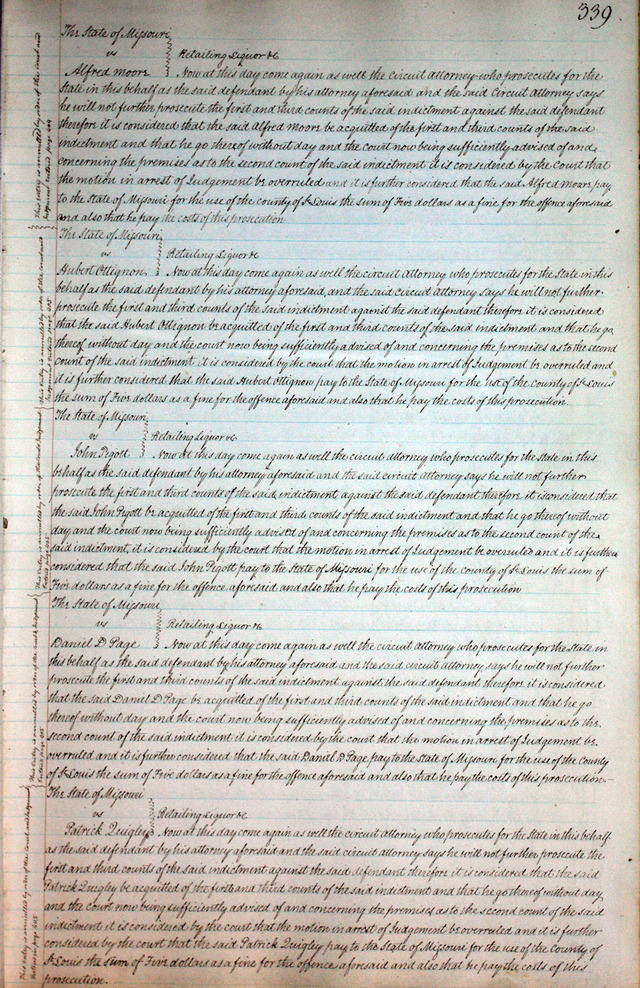 339
The State of Missouri
vs Retailing Liquor &c
Alfred Moore Now at this day come again as well the circuit attorney who prosecutes for the
State in this behalf as the said defendant by his attorney aforesaid and the said Circuit Attorney says
he will not further prosecute the first and third counts of the said indictment against the said defendant
therefore it is considered that the said Alfred Moore be acquited of the first and third counts of the said
indictment and that he go thereof without day and the court now being sufficiently advised of and
concerning the premises as to the second count of the said indictment it is considered by the Court that
the motion in arrest of Judgement be overruled and it is further considered that the said Alfred Moore pay
to the State of Missouri for the use of the county of St Louis the sum of Five dollars as a fine for the offence aforesaid
and also that he pay the costs of this prosecution
The State of Missouri
vs Retailing Liquor &c
Hubert Ottignon Now at this day come again as well the circuit attorney who prosecutes for the State in this
behalf as the said defendant by his attorney aforesaid, and the said circuit attorney says he will not further
prosecute the first and third counts of the said indictment against the said defendant therefore it is considered
that the said Hubert Ottignon be acquited of the first and third counts of the said indictment and that he go
thereof without day and the court now being sufficiently advised of and concerning the premises as to the second
count of the said indictment it is considered by the court that the motion in arrest of Judgement be overruled and
it is further considered that the said Hubert Ottignon pay to the State of Missouri for the use of the county of St Louis
the sum of Five dollars as a fine for the offence aforesaid and also that he pay the costs of this prosecution.
The State of Missouri
vs Retailing Liquor &c
John Pigott Now at this day come again as well the circuit attorney who prosecutes for the State in this
behalf as the said defendant by his attorney aforesaid and the said circuit attorney says he will not further
prosecute the first and third counts of the said indictment against the said defendant therefore it is considered that
the said John Pigott be acquited of the first and third counts of the said indictment and that he go thereof without
day and the court now being sufficiently advised of and concerning the premises as to the second count of the
said indictment it is considered by the court that the motion in arrest of Judgement be overruled and it is further
considered that the said John Pigott pay to the State of Missouri for the use of the county of St Louis the sum of
Five dollars as a fine for the offence aforesaid and also that he pay the costs of this prosecution
The State of Missouri
vs Retailing Liquor &c
Daniel D Page Now at this day come again as well the circuit attorney who prosecutes for the State in
this behalf as the said defendant by his attorney aforesaid and the said circuit attorney says he will not further
prosecute the first and third counts of the said indictment against the said defendant therefore it is considered
that the said Daniel D Page be acquited of the first and third counts of the said indictment and that he go
thereof without day and the court now being sufficiently advised of and concerning the premises as to the
second count of the said indictment it is considered by the court that the motion in arrest of Judgement be
overruled and it is further considered that the said Daniel D Page pay to the State of Missouri for the use of the County
of St Louis the sum of Five dollars as a fine for the offence aforesaid and also that he pay the costs of this prosecution
The State of Missouri
vs Retailing Liquor &c
Patrick Quigley Now at this day come again as well the circuit attorney who prosecutes for the State in this behalf
as the said defendant by his attorney aforesaid and the said circuit attorney says he will not further prosecute the
first and third counts of the said indictment against the said defendant therefore it is considered that the said
Patrick Quigley be acquited of the first and third counts of the said indictment and that he go thereof without day
and the court now being sufficiently advised of and concerning the premises as to the second count of the said
indictment it is considered by the court that the motion in arrest of Judgement be overruled and it is further
considered by the court that the said Patrick Quigley pay to the State of Missouri for the use of the County of
St Louis the sum of Five dollars as a fine for the offence aforesaid and also that he pay the costs of this
prosecution.